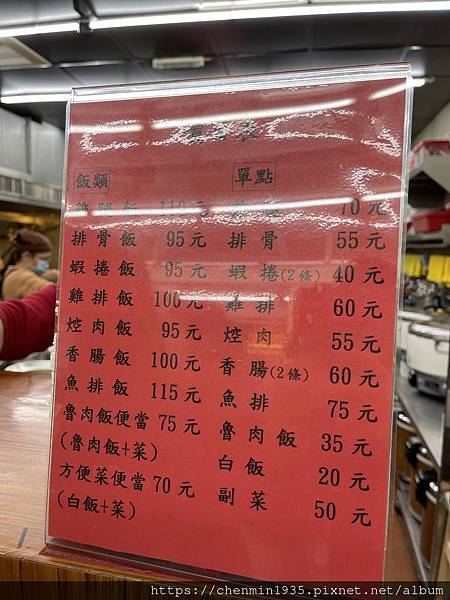 飯類
雞腿飯 110元
排骨飯 95元
蝦捲飯 95元
雞排飯 100元
焢肉飯 95元
香腸飯 100元
魚排飯 115元
魯肉飯便當 75元
(魯肉飯+菜)
方便菜便當 70元
(白飯+菜)
單點
70元
排骨 55元
蝦捲(2條) 40元
雞排 60元
焢肉 55元
香腸(2條) 60元
魚排 75元
魯肉飯 35元
白飯 20元
副菜 50元
https://chenmin1935.pixnet.net/album